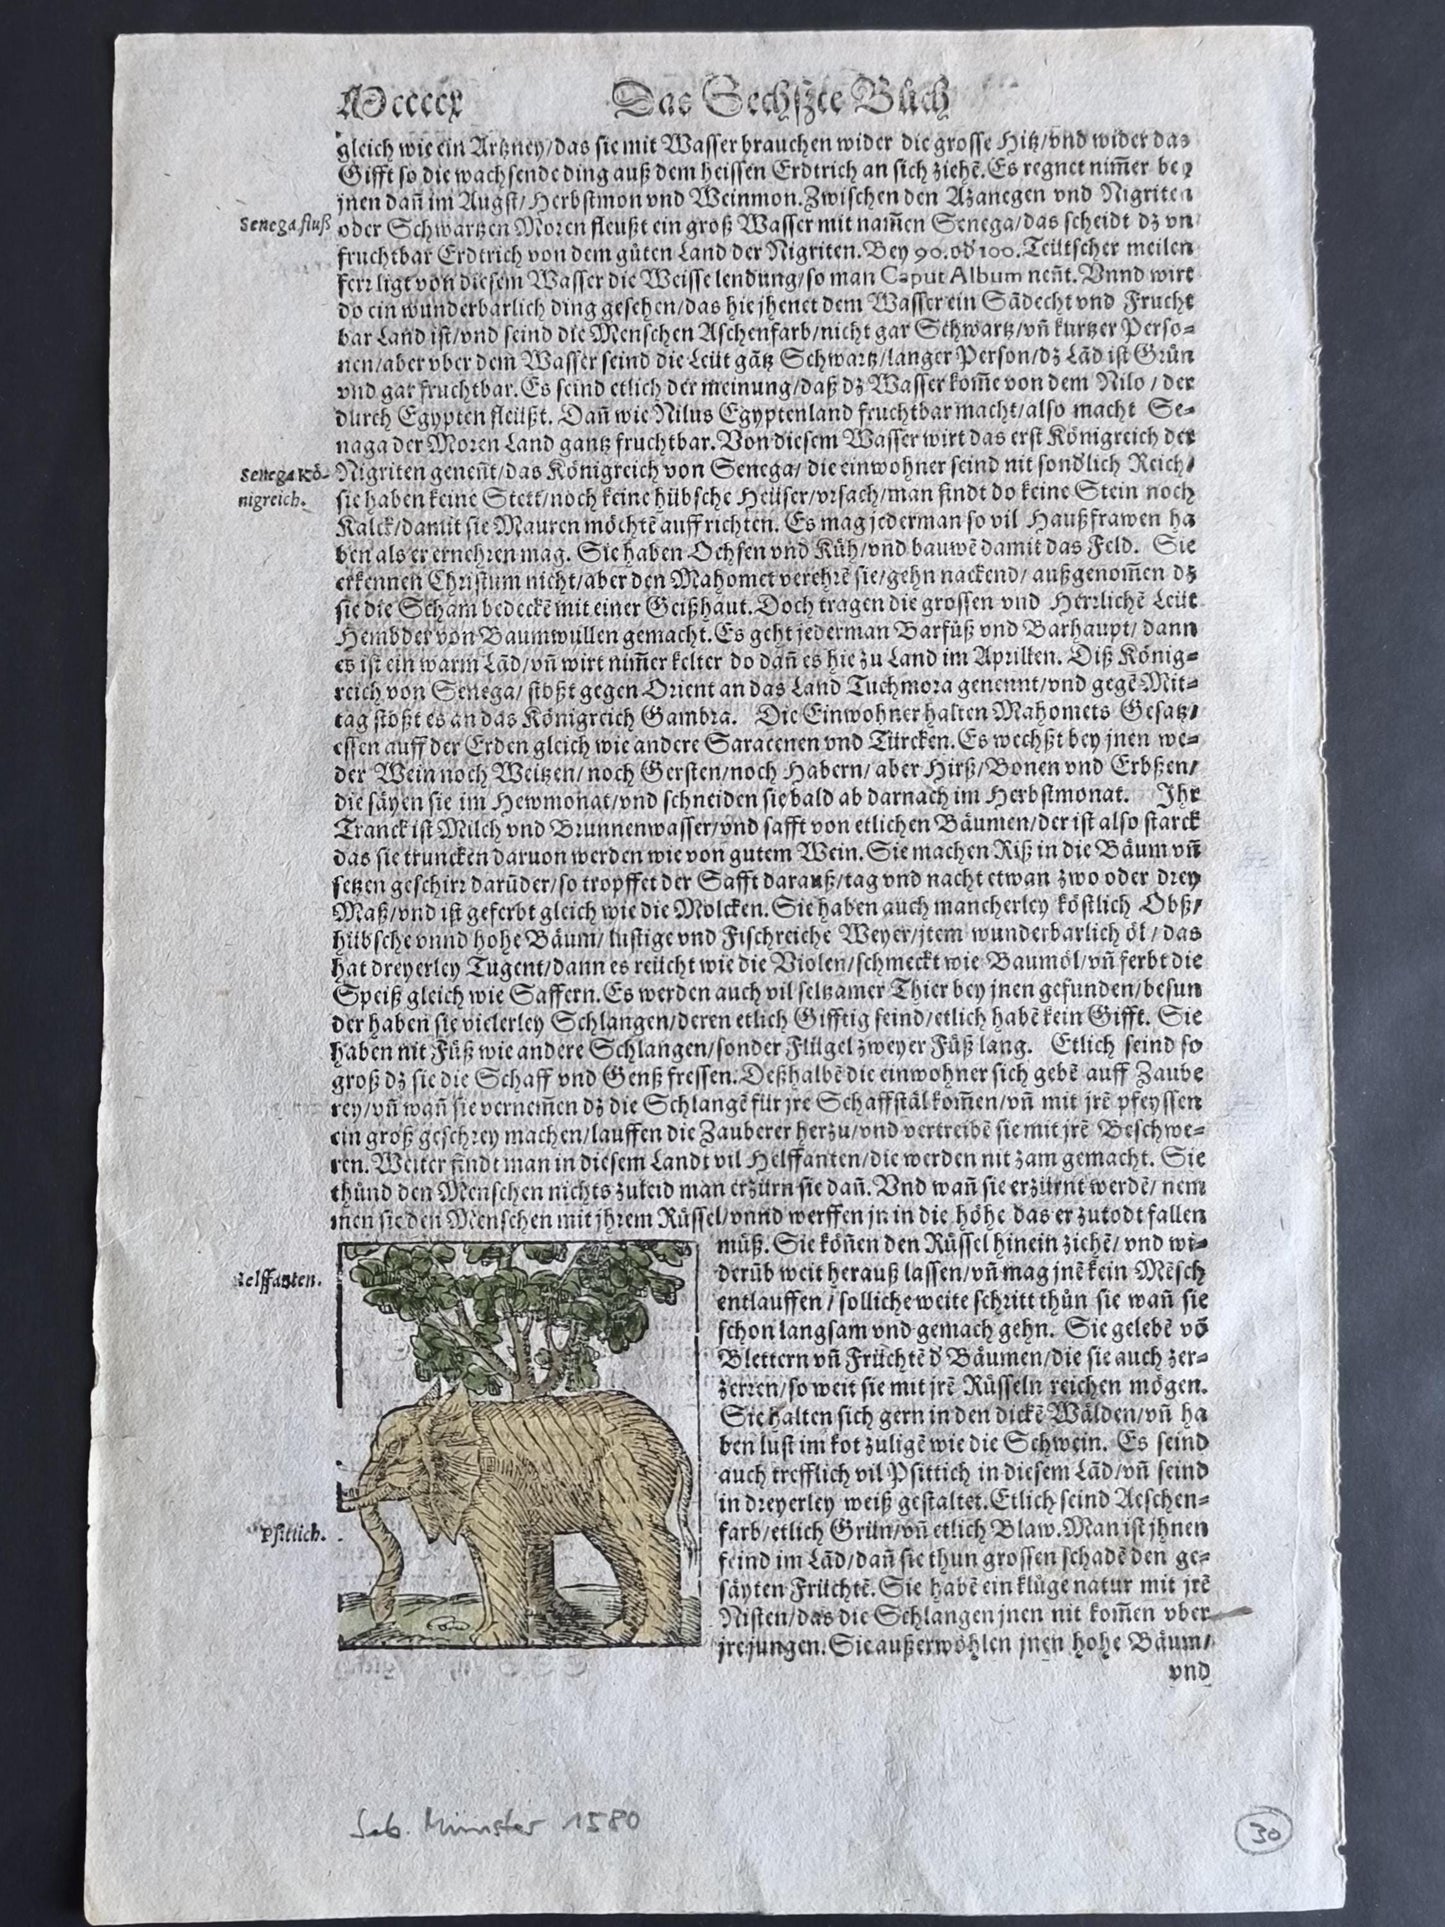 Mccccx Das Sechßte Bůch
gleich wie ein Artzney/das sie mit Wasser brauchen wider die grosse Hitz/vnd wider das
Gifft so die wachsende ding auß dem heissen Erdtrich an sich ziehẽ. Es regnet nim̃er bey
jnen dañ im Augst/Herbstmon vnd Weinmon. Zwischen den Azanegen vnd Nigriten
Senega fluß
oder Schwartzen Moren fleußt ein groß Wasser mit nam̃en Senega/das scheidt dz vn
fruchtbar Erdtrich von dem gůten Land der Nigriten. Bey 90. od 100. Teütscher meilen
ferr ligt von diesem Wasser die Weisse lendung/so man Caput Album neñt. Vnnd wirt
do ein wunderbarlich ding gesehen/das hie jhenet dem Wasser ein Sãdecht vnd Frucht
bar Land ist/vnd seind die Menschen Aschenfarb/nicht gar Schwartz/vñ kurtzer Perso-
nen/aber vber dem Wasser seind die Leüt gãtz Schwartz/langer Person/dz Lãd ist Grůn
vnd gar fruchtbar. Es seind etlich der meinung/daß dz Wasser kom̃e von dem Nilo/der
durch Egypten fleüßt. Dañ wie Nilus Egyptenland fruchtbar macht/also macht Se-
naga der Moren Land gantz fruchtbar. Von diesem Wasser wirt das erst Königreich der
Senega Kö-
nigreich.
Nigriten geneñt/das Königreich von Senega/die einwohner seind nit sondlich Reich/
sie haben keine Stett/noch keine hübsche Heüser/vrsach/man findt do keine Stein noch
Kalck/damit sie Mauren möchtẽ auffrichten. Es mag jederman so vil Haußfrawen ha
ben als er ernehren mag. Sie haben Ochsen vnd Küh/vnd bauwẽ damit das Feld. Sie
erkennen Christum nicht/aber den Mahomet verehrẽ sie/gehn nackend/außgenom̃en dz
sie die Scham bedeckẽ mit einer Geißhaut. Doch tragen die grossen vnd Herrlichẽ Leüt
Hembder von Baumwullen gemacht. Es geht jederman Barfůß vnd Barhaupt/dann
es ist ein warm Lãd/vñ wirt nim̃er kelter do dañ es hie zu Land im Aprillen. Diß König-
reich von Senega/stößt gegen Orient an das Land Tuchmora genennt/vnd gegẽ Mit-
tag stößt es an das Königreich Gambra. Die Einwohner halten Mahomets Gesatz/
essen auff der Erden gleich wie andere Saracenen vnd Türcken. Es wechßt bey jnen we-
der Wein noch Weitzen/noch Gersten/noch Habern/aber Hirß/Bonen vnd Erbßen/
die säyen sie im Hewmonat/vnd schneiden sie bald ab darnach im Herbstmonat. Ihr
Tranck ist Milch vnd Brunnenwasser/vnd safft von etlichen Bäumen/der ist also starck
das sie truncken daruon werden wie von gutem Wein. Sie machen Riß in die Bäum vñ
setzen geschirr darũder/so tropffet der Safft darauß/tag vnd nacht etwan zwo oder drey
Maß/vnd ist geferbt gleich wie die Molcken. Sie haben auch mancherley köstlich Obß/
hübsche vnnd hohe Bäum/lustige vnd Fischreiche Weyer/jtem wunderbarlich öl/das
hat dreyerley Tugent/dann es reücht wie die Violen/schmeckt wie Baumöl/vñ ferbt die
Speiß gleich wie Saffern. Es werden auch vil seltzamer Thier bey jnen gefunden/besun
der haben sie vielerley Schlangen/deren etlich Gifftig seind/etlich habẽ kein Gifft. Sie
haben nit Füß wie andere Schlangen/sonder Flügel zweyer Füß lang. Etlich seind so
groß dz sie die Schaff vnd Genß fressen. Deßhalbẽ die einwohner sich gebẽ auff Zaube
rey/vñ wañ sie vernem̃en dz die Schlangẽ für jre Schaffstäl kom̃en/vñ mit jrẽ pfeyssen
ein groß geschrey machen/lauffen die Zauberer herzu/vnd vertreibẽ sie mit jrẽ Beschwe-
ren. Weiter findt man in diesem Landt vil Helffanten/die werden nit zam gemacht. Sie
thůnd den Menschen nichts zuleid man erzürn sie dañ. Vnd wañ sie erzürnt werdẽ/nem
men sie den Menschen mit jhrem Rüssel/vnnd werffen jn in die höhe das er zutodt fallen
Helffanten.
můß. Sie köñen den Rüssel hinein ziehẽ/vnd wi-
derũb weit herauß lassen/vñ mag jnẽ kein Mẽsch
entlauffen/solliche weite schritt thůn sie wañ sie
schon langsam vnd gemach gehn. Sie gelebẽ võ
Blettern vñ Früchtẽ d' Bäumen/die sie auch zer-
zerren/so weit sie mit jrẽ Rüsseln reichen mögen.
Sie halten sich gern in den dickẽ Wälden/vñ ha
ben lust im kot zuligẽ wie die Schwein. Es seind
auch trefflich vil Psittich in diesem Lãd/vñ seind
in dreyerley weiß gestaltet. Etlich seind Aeschen-
Psittich.
farb/etlich Grün/vñ etlich Blaw. Man ist jhnen
feind im Lãd/dañ sie thun grossen schadẽ den ge-
säyten Früchtẽ. Sie habẽ ein klůge natur mit jrẽ
Nisten/das die Schlangen jnen nit kom̃en vber
jre jungen. Sie außerwöhlen jnen hohe Bäum/
vnd
Seb. Münster 1580
30